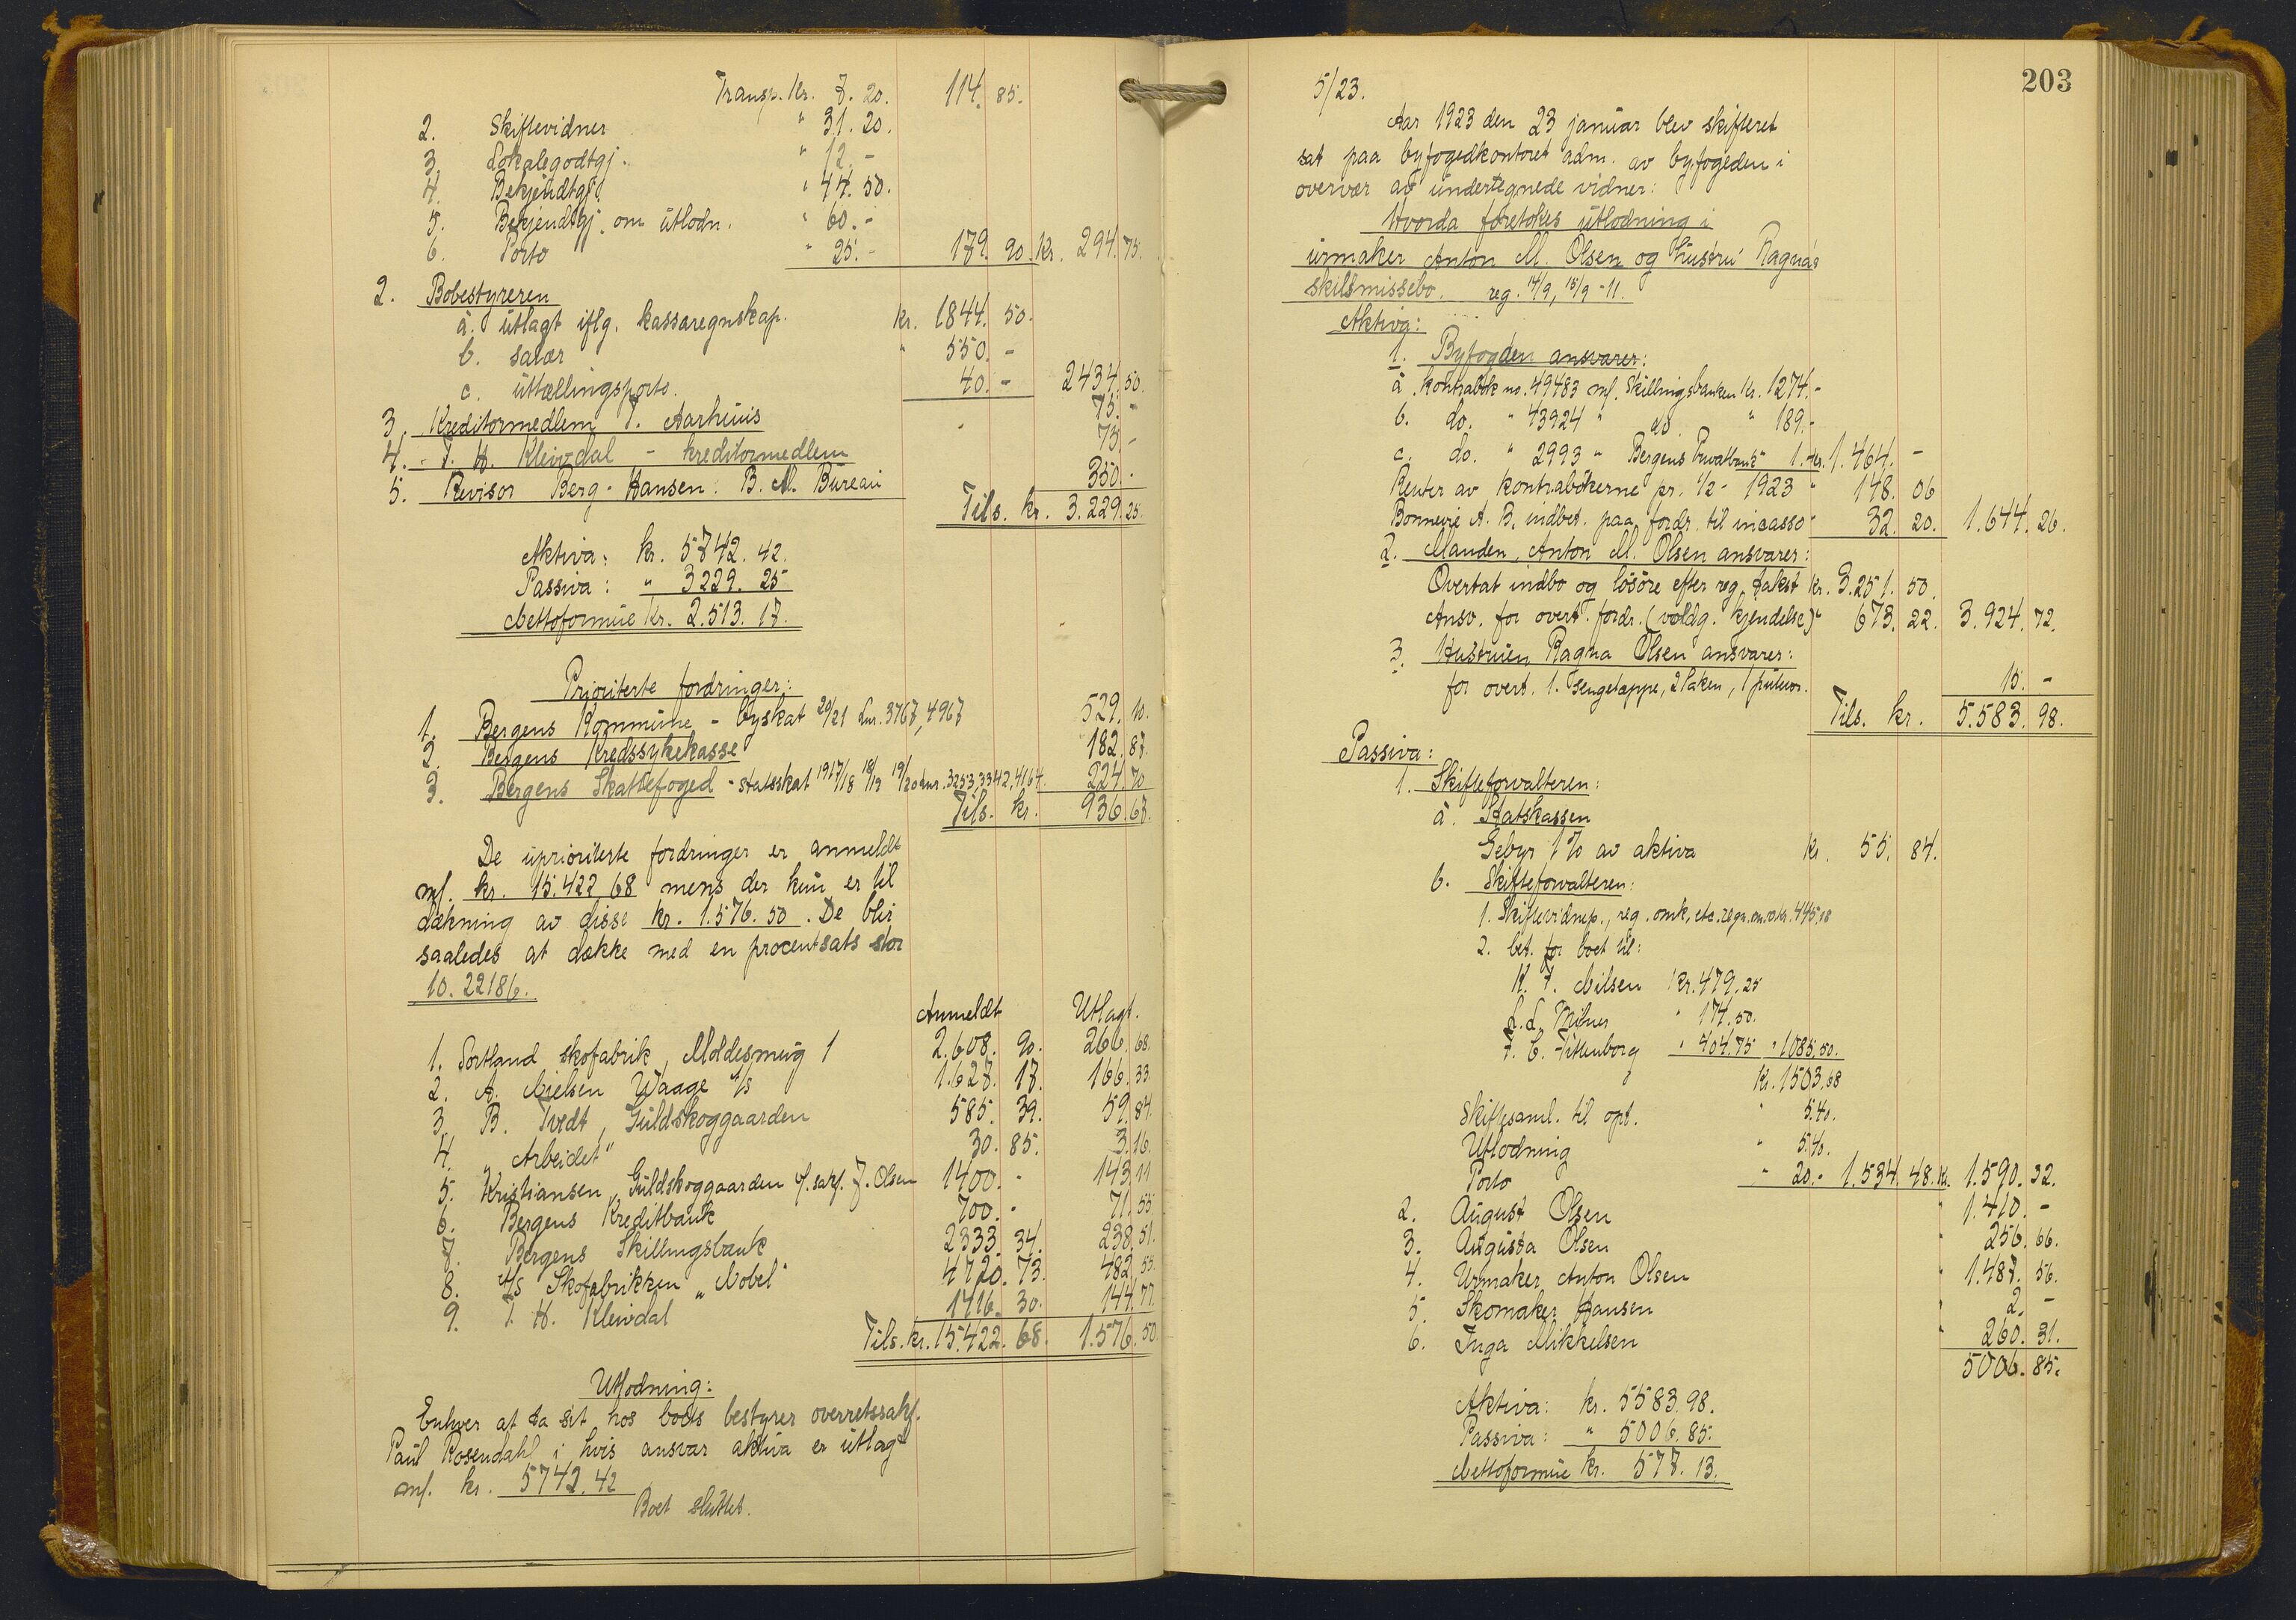 Transp. Kr. 7. 20. 114. 85.
2. Skiftevidner " 31. 20.
3. Lokalegodtgj. " 12. -
4. Bekjendtgj. " 44. 50.
5. Bekjendtgj. om utlodn. " 60. -
6. Porto " 25. - 179. 90. Kr. 294. 75.
2. Bobestyreren
a. utlagt iflg. kassaregnskap. kr. 1844. 50.
b. salær " 550. -
c. uttællingsporto. 40. - 2434. 50.
3. Kreditormedlem J. Aarhuus 75. -
4. " T. H. Kleivdal - kreditormedlem 75. -
5. Revisor Berg-Hansen: B. M. Bureau 350. -
Tils. kr. 3.229. 25.
Aktiva: kr. 5742. 42.
Passiva: " 3229. 25
Nettoformue Kr. 2.513. 17.
Prioriterte fordringer:
1. Bergens Kommune - byskat 20/21 Lnr. 3767, 4967 529. 10.
2. Bergens Kredssykekasse 182. 87.
3. Bergens Skattefoged - statsskat 1917/18 18/19 19/20 Lnr. 3253, 3342, 4164 224. 70
Tils. kr. 936. 67.
De uprioriterte fordringer er anmeldt
m/. kr. 15.422 68 mens der kun er til
dækning av disse kr. 1.576. 50. De blir
saaledes at dække med en procentsats stor
10. 22186.
Anmeldt Utlagt.
1. Portland skofabrik, Moldesmug 1 2.608. 90. 266. 68.
2. A. Nielsen Waage A/S 1.627. 17. 166. 33
3. B. Tvedt, Guldskoggaarden 585. 39. 59. 84.
4. "Arbeidet" 30. 85. 3. 16.
5. Kristiansen, Guldskoggaarden v/. sakf. J. Olsen 1400. - 143. 11
6. Bergens Kreditbank 700. - 71. 55
7. Bergens Skillingsbank 2333. 34. 238. 51.
8. A/S Skofabrikken "Nobel" 4720. 73. 482. 55.
9. T. H. Kleivdal 1416. 30. 144. 77.
Tils. kr. 15.422. 68. 1.576. 50
Utlodning:
Enhver at ta sit hos boets bestyrer overretssakf.
Paul Rosendahl i hvis ansvar aktiva er utlagt
m/. kr. 5742. 42
Boet sluttet.
203
5/23.
Aar 1923 den 23 januar blev skifteret
sat paa byfogedkontoret adm. av byfogeden i
overvær av undertegnede vidner:
Hvorda foretokes utlodning i
urmaker Anton M. Olsen og hustru Ragna's
skilsmissebo. reg. 14/9, 15/9 -11.
Aktiva:
1. Byfogden ansvarer:
a. kontrabok no. 49483 m/. Skillingsbanken Kr. 1274. -
b. do. " 43924 " do. " 189. -
c. do. " 2993 " Bergens Privatbank " 1. - Kr. 1.464. -
Renter av kontrabøkerne pr. 1/2 - 1923 " 148. 06
Bonnevie A. B. indbet. paa fordr. til incasso " 32. 20. 1.644. 26.
2. Manden, Anton M. Olsen ansvarer:
Overtat indbo og løsøre efter reg. takst Kr. 3.251. 50.
Ansv. for overt. fordr. (voldg. kjendelse) " 673. 22. 3.924. 72.
3. Hustruen Ragna Olsen ansvarer:
for overt. 1. sengetæppe, 2 laken, 1 putevar. 15. -
Tils. kr. 5.583. 98.
Passiva:
1. Skifteforvalteren:
a. Statskassen
Gebyr 1% av aktiva Kr. 55. 84.
b. Skifteforvalteren:
1. Skiftevidnep., reg. omk, etc. kr. 445,18
2. bet. for boet til:
K. F. Nilsen Kr. 479. 25
L. L. Milner " 174. 50.
F. C. Fittenborg " 404. 75 " 1085. 50.
Kr. 1503. 68
Skiftesaml. til opt. " 5.40.
Utlodning " 5.40.
Porto " 20. - 1.534. 48. Kr. 1.590. 32.
2. August Olsen " 1.410. -
3. Augusta Olsen " 256. 66.
4. Urmaker Anton Olsen " 1.487. 56.
5. Skomaker Hansen " 2. -
6. Inga Mikkelsen " 260. 31.
5006. 85.
Aktiva: kr. 5583. 98.
Passiva: " 5006. 85.
Nettoformue kr. 577. 13.